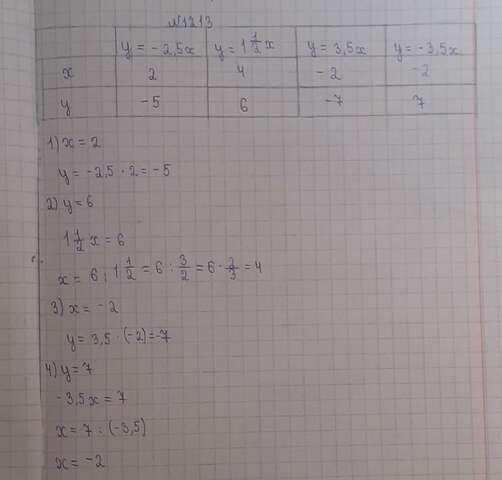 №1213
y = -2,5x y = 1 1/2 x y = 3,5x y = -3,5x
x 2 4 -2 -2
y -5 6 -7 7
1) x = 2
y = -2,5 · 2 = -5
2) y = 6
1 1/2 x = 6
x = 6 : 1 1/2 = 6 : 3/2 = 6 · 2/3 = 4
3) x = -2
y = 3,5 · (-2) = -7
4) y = 7
-3,5x = 7
x = 7 : (-3,5)
x = -2